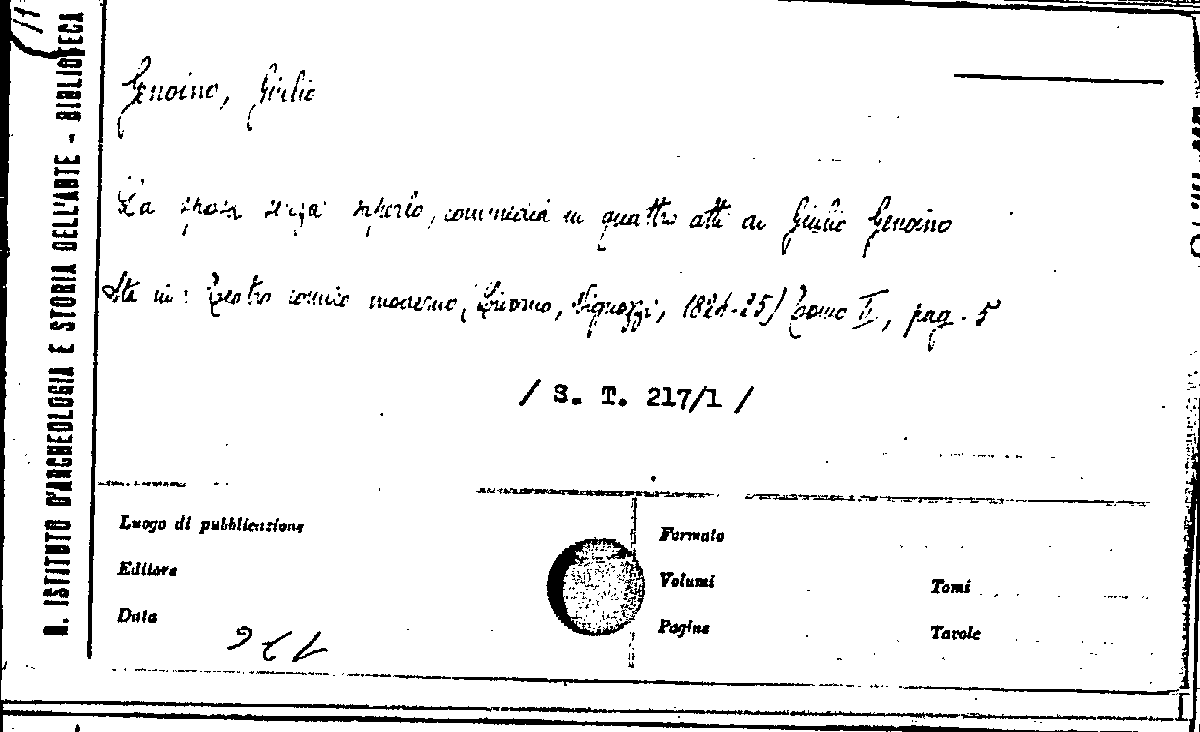 R. ISTITUTO D'ARCHEOLOGIA E STORIA DELL'ARTE - BIBLIOTECA
Genoino, Giulio
La sposa senza saperlo, commedia in quattro atti di Giulio Genoino
Sta in: Teatro comico moderno, (Livorno, Vignozzi, 1824-25) Tomo II, pag. 5
/ S. T. 217/1 /
Luogo di pubblicazione
Editore
Data
Formato
Volumi
Tomi
Pagine
Tavole